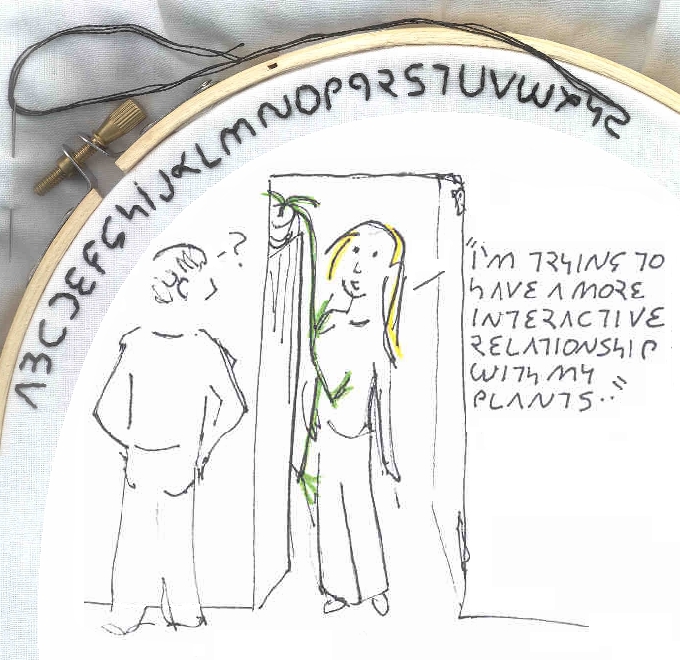 ABCDEFGHIJKLMNOPQRSTUVWXYZ
?
"I'M TRYING TO
HAVE A MORE
INTERACTIVE
RELATIONSHIP
WITH MY
PLANTS.."